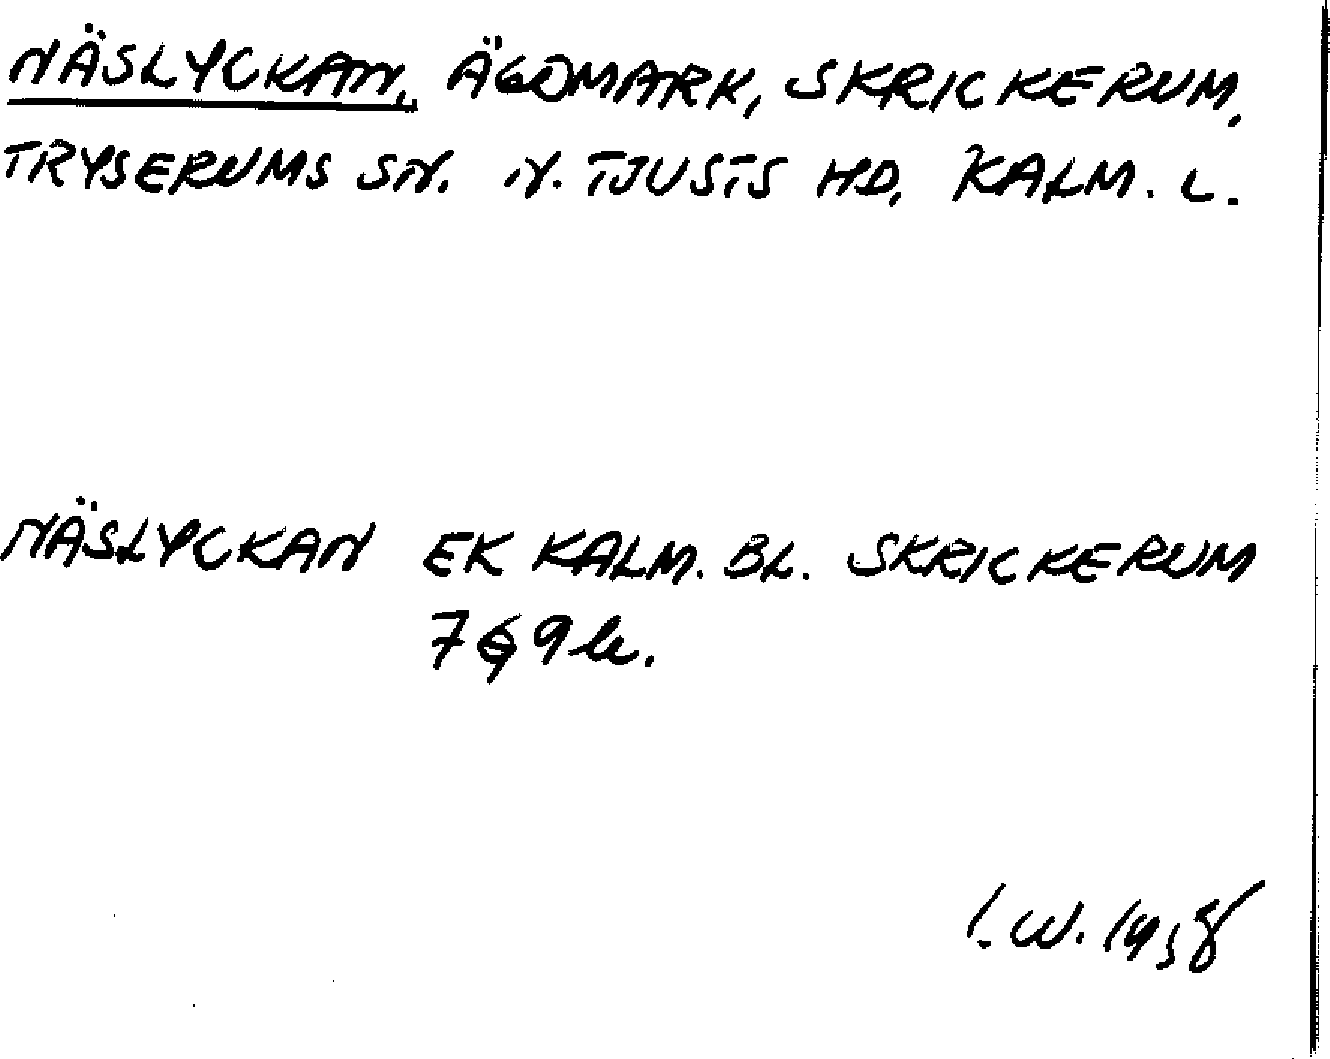 NÄSLYCKAN, ÄGOMARK, SKRICKERUM,
TRYSERUMS SN. N. TJUSTS HD, KALM. L.
NÄSLYCKAN EK KALM. BL. SKRICKERUM
I.W. 1958